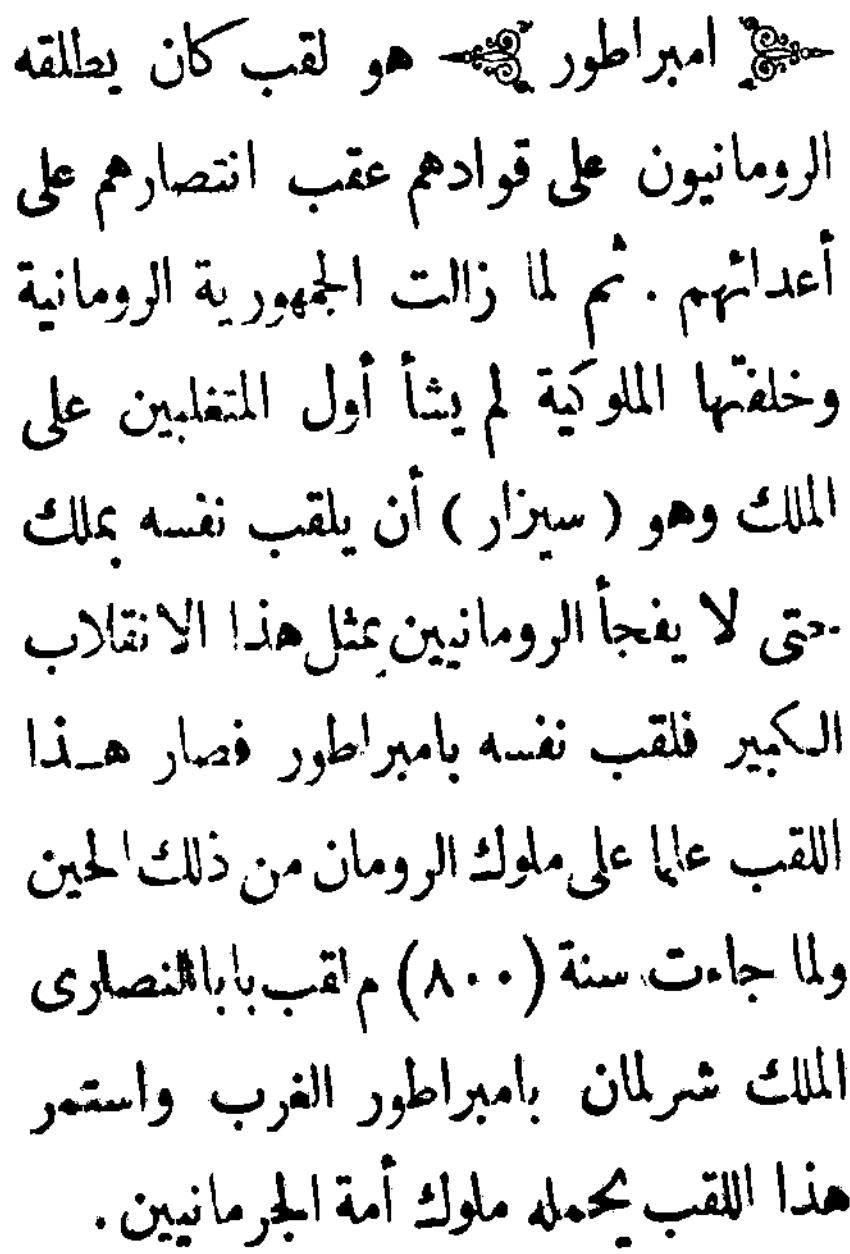 امبراطور هو لقب كان يطلقه
الرومانيون على قوادهم عقب انتصارهم على
أعدائهم . ثم لما زالت الجمهورية الرومانية
وخلفتها الملوكية لم يشأ أول المتغلبين على
الملك وهو ( سيزار ) أن يلقب نفسه بملك
حتى لا يفجأ الرومانيين بمثل هذا الانقلاب
الكبير فلقب نفسه بامبراطور فصار هـذا
اللقب علما على ملوك الرومان من ذلك الحين
ولما جاءت سنة (٨٠٠) م لقب بابا النصارى
الملك شرلمان بامبراطور الغرب واستمر
هذا اللقب يحمله ملوك أمة الجرمانيين .